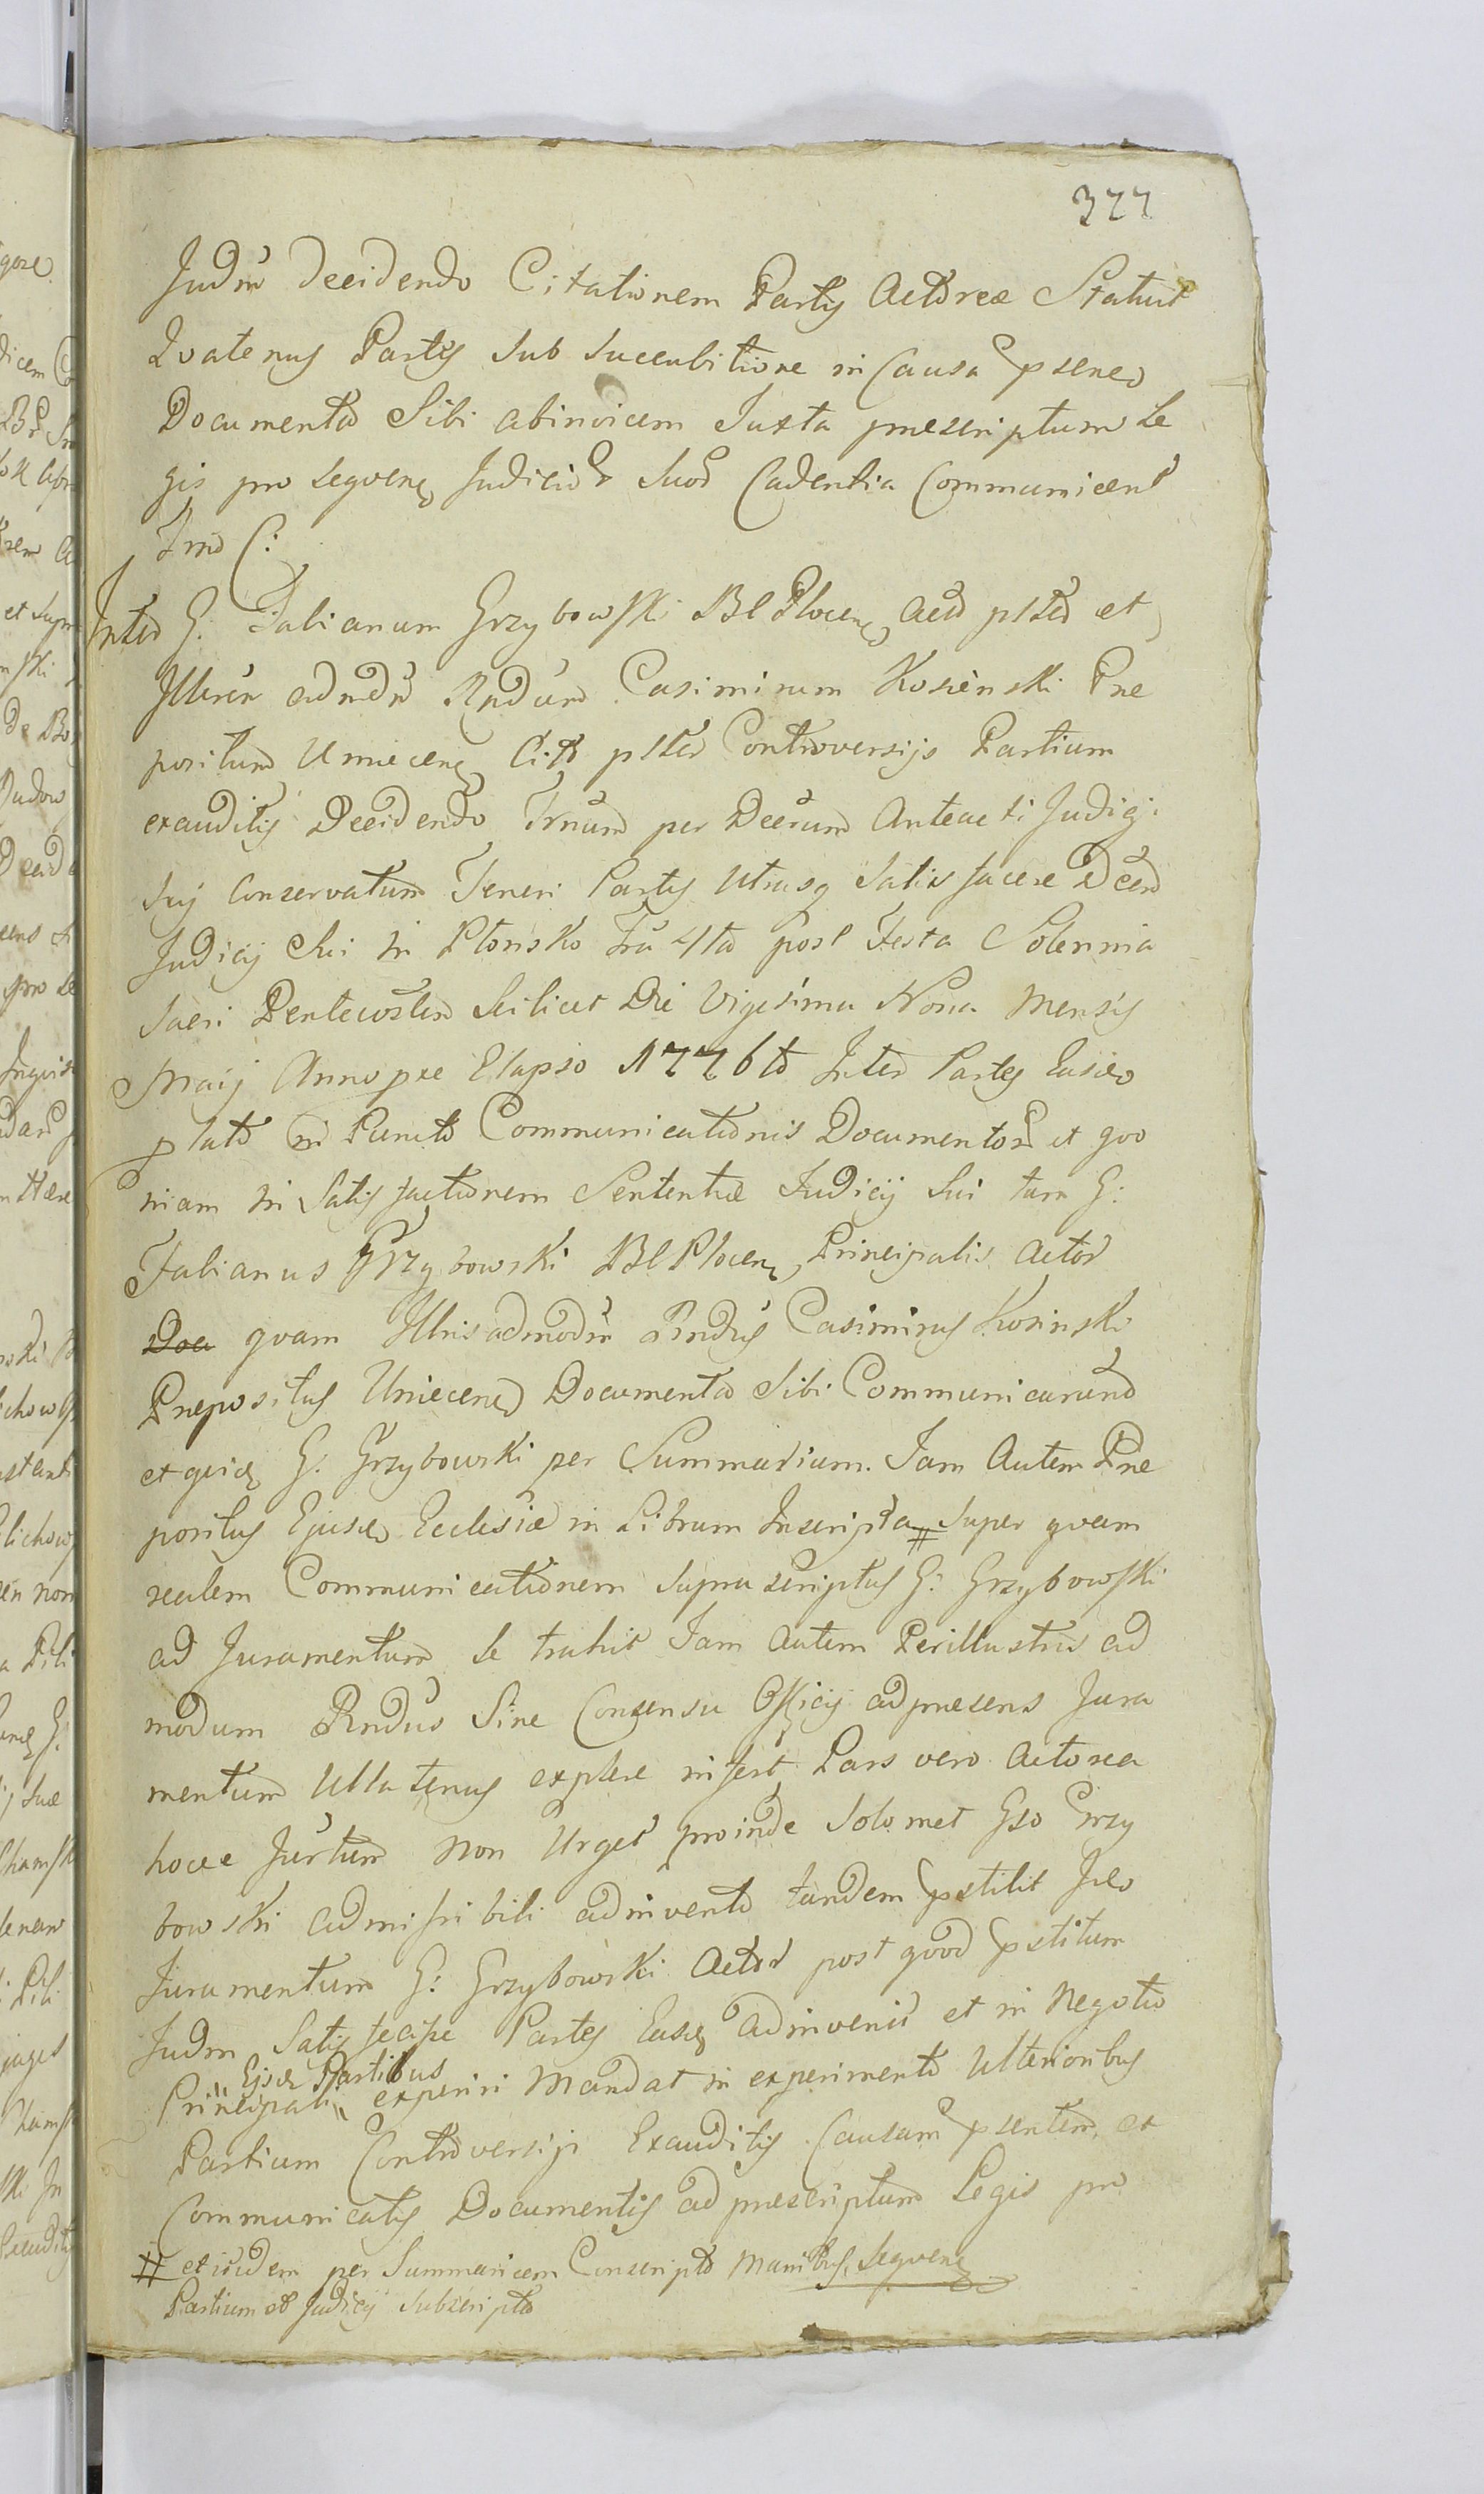 377
Judm Decidendo Citationem Partis Actoreæ Statuit
Qvatenus Partes Sub Succubitione in Causa psenев
Documenta Sibi abinvicem Juxta præscriptum Le
gis pro seqven Judicio Suo Cadentia Communicent
Trno C:
Inter G: Fabianum Grzybowski BC Plocen Act pltem et
Illrem admdm Rndum Casimirum Kosienski Præ
positum Umiecen Citt pltem Controversijs Partium
exauditis Decidendo Trnum per Decrum Anteacti Judicij
Sui Conservatum Teneri Partes Utrasq Satisfacere Dcto
Judicij Sui in Płonsko Fra 4ta post Festa Solennia
Sacri Pentecosten Scilicet Die Vigesima Nona Mensis
Maij Anno præ Elapso 1776to Inter Partes Easdem
plato in Puncto Communicationis Documentor et qvo
niam in Satisfactionem Sententiæ Judicij Sui tam G:
Fabianus Grzybowski BC Plocen Principalis Actor
Doa qvam Illris admodm Rndus Casimirus Kosinski
Præpositus Umiecen Documenta Sibi Communicarunt
et qvid G: Grzybowski per Summarium. Jam Autem Præ
positus Ejusd Ecclesiæ in Librum Inscripta # Super qvam
realem Communicationem Supra scriptus G: Grzybowski
ad Juramentum se trahit Jam Autem Perillustris ad
modum Rndus Sine Consensu Officij ad præsens Jura
mentum Ullatenus explere infert Pars vero Actorea
hocce Jurtum non Urget proinde Solomet Gso Grzy
bowski admissibili adinvento tandem pstitit Ideo
Juramentum G: Grzybowski Actor post qvod pstitum
Judm Satis fecisse Partes Easd adinvenit et in Negotio
Ejusd Partibus
Principali experiri Mandat in experimento Ulterioribus
Partium Controversijs Exauditis Causam psentem et
Communicatis Documentis ad præscriptum Legis pro
# et itidem per Summaricem Conscripta Manibus Seqven
Partium et Judicij Subscripta